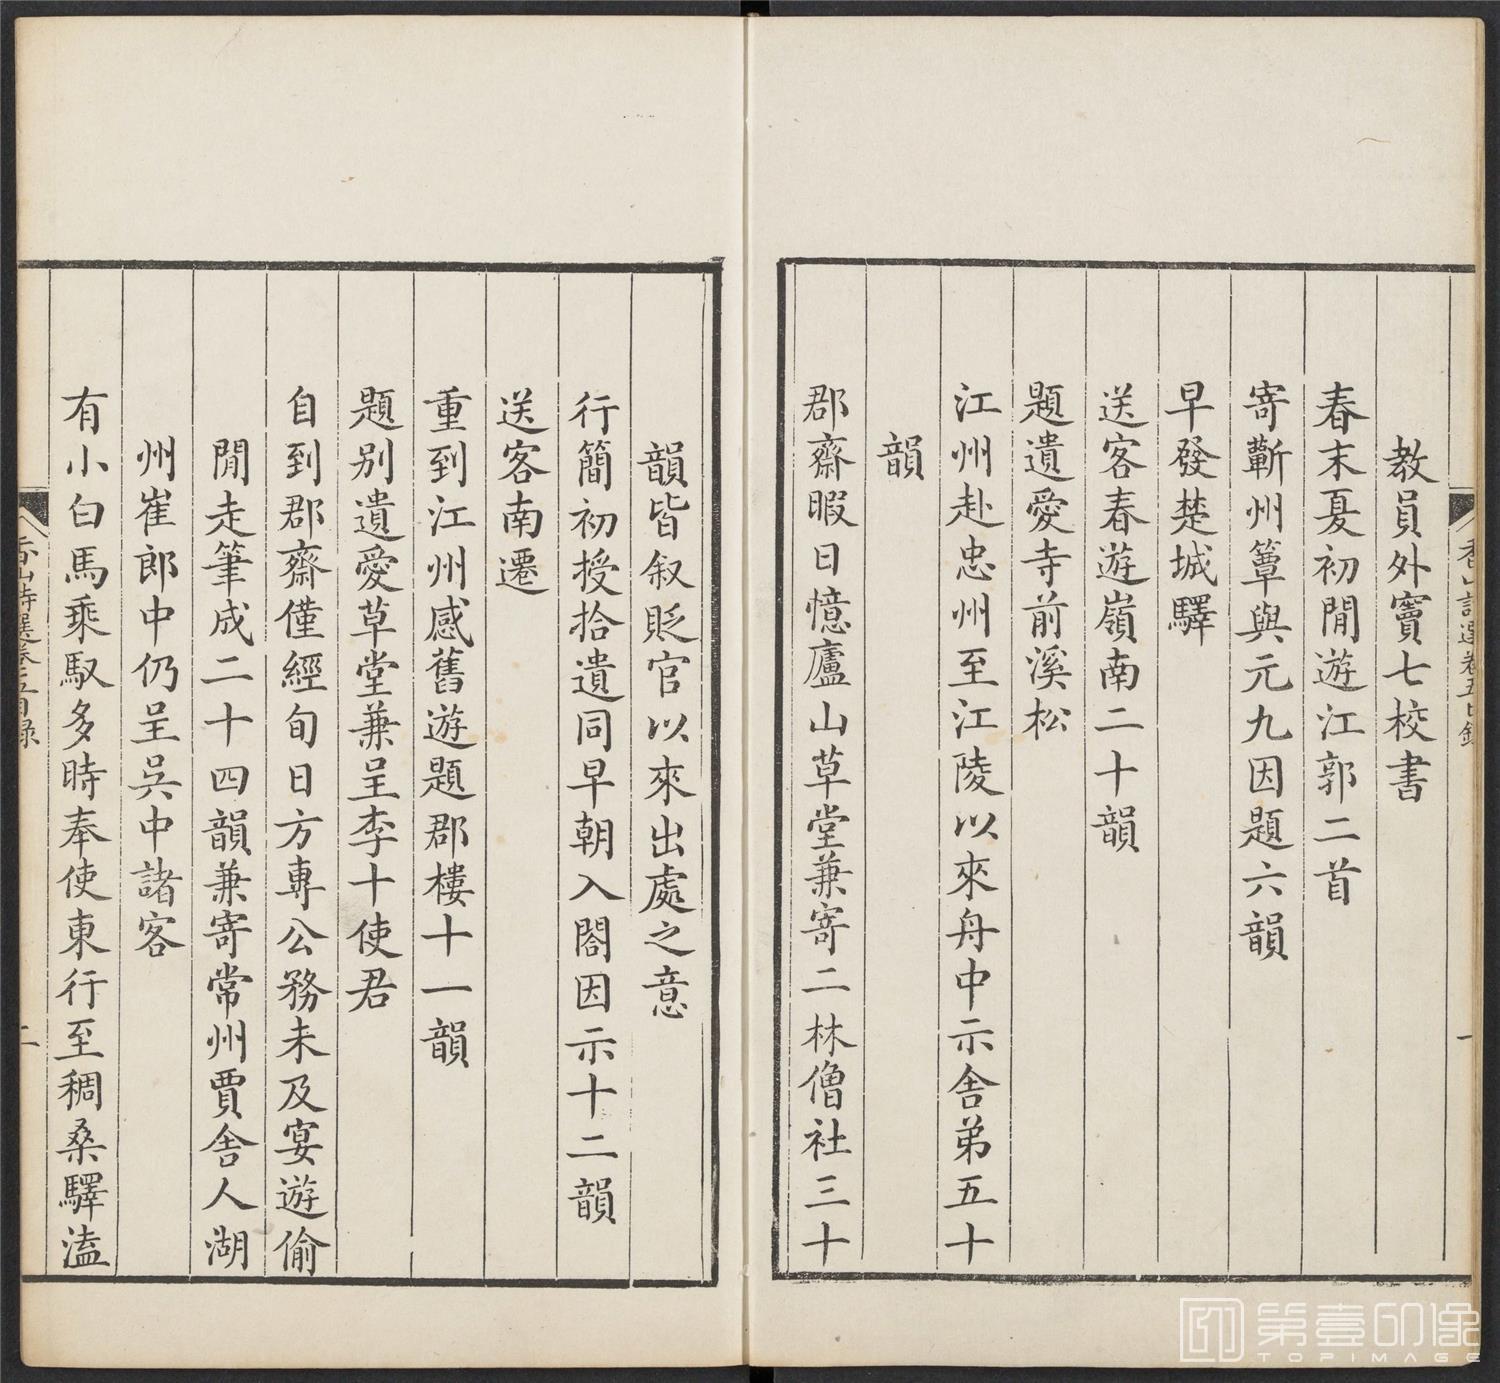 教員外竇七校書
春末夏初閒遊江郭二首
寄蘄州簟與元九因題六韻
早發楚城驛
送客春遊嶺南二十韻
題遺愛寺前溪松
江州赴忠州至江陵以來舟中示舍弟五十
韻
郡齋暇日憶廬山草堂兼寄二林僧社三十
韻皆叙貶官以來出處之意
行簡初授拾遺同早朝入閤因示十二韻
送客南遷
重到江州感舊遊題郡樓十一韻
題别遺愛草堂兼呈李十使君
自到郡齋僅經旬日方專公務未及宴遊偷
閒走筆成二十四韻兼寄常州賈舍人湖
州崔郎中仍呈吳中諸客
有小白馬乘馭多時奉使東行至稠桑驛溘
香山詩選卷五目録
一
香山詩選卷五目録
二
第壹印像
TOPIMAGE